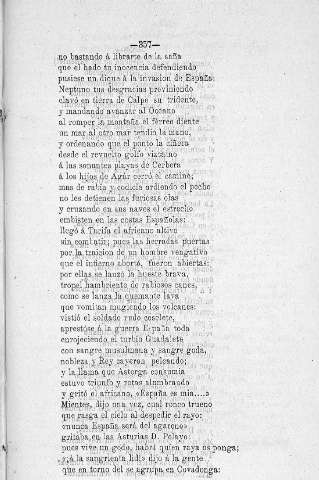 —357—
no bastando á librarte de la saña
que el hado tu inocencia defendiendo
pusiese un dique á la invasion de España;
Neptuno tus desgracias previniendo
clavó en tierra de Calpe su tridente,
y mandando avanzar al Oceano
al romper la montaña el férreo diente
un mar al otro mar tendió la mano,
y ordenando que el ponto la ciñera
desde el revuelto golfo vizcaino
á las sonantes playas de Cerbera
á los hijos de Agár cerró el camino;
mas de rabia y codicia ardiendo el pecho
no les detienen las furiosas olas
y cruzando en sus naves el estrecho
embisten en las costas Españolas:
llegó á Tarifa el africano altivo
sin combatir; pues las herradas puertas
por la traicion de un hombre vengativo
que el infierno abortó, fueron abiertas:
por ellas se lanzó la hueste brava,
tropel hambriento de rabiosos canes,
como se lanza la quemante lava
que vomitan mugiendo los volcanes:
vistió el soldado rudo coselete,
aprestóse á la guerra España toda
enrojeciendo el turbio Guadalete
con sangre musulmana y sangre goda,
nobleza y Rey cayeron peleando;
y la llama que Astorga consumia
estuvo triunfo y rotas alumbrando
y gritó el africano, «España es mia...»
Mientes, dijo una voz, cual ronco trueno
que rasga el cielo al despedir el rayo:
«nunca España será del agareno»
gritaba en las Asturias D. Pelayo
pues vive un godo, habrá quien raya os ponga;
«¡á la sangrienta lid!» dijo á la gente
que en torno del se agrupa en Covadonga: